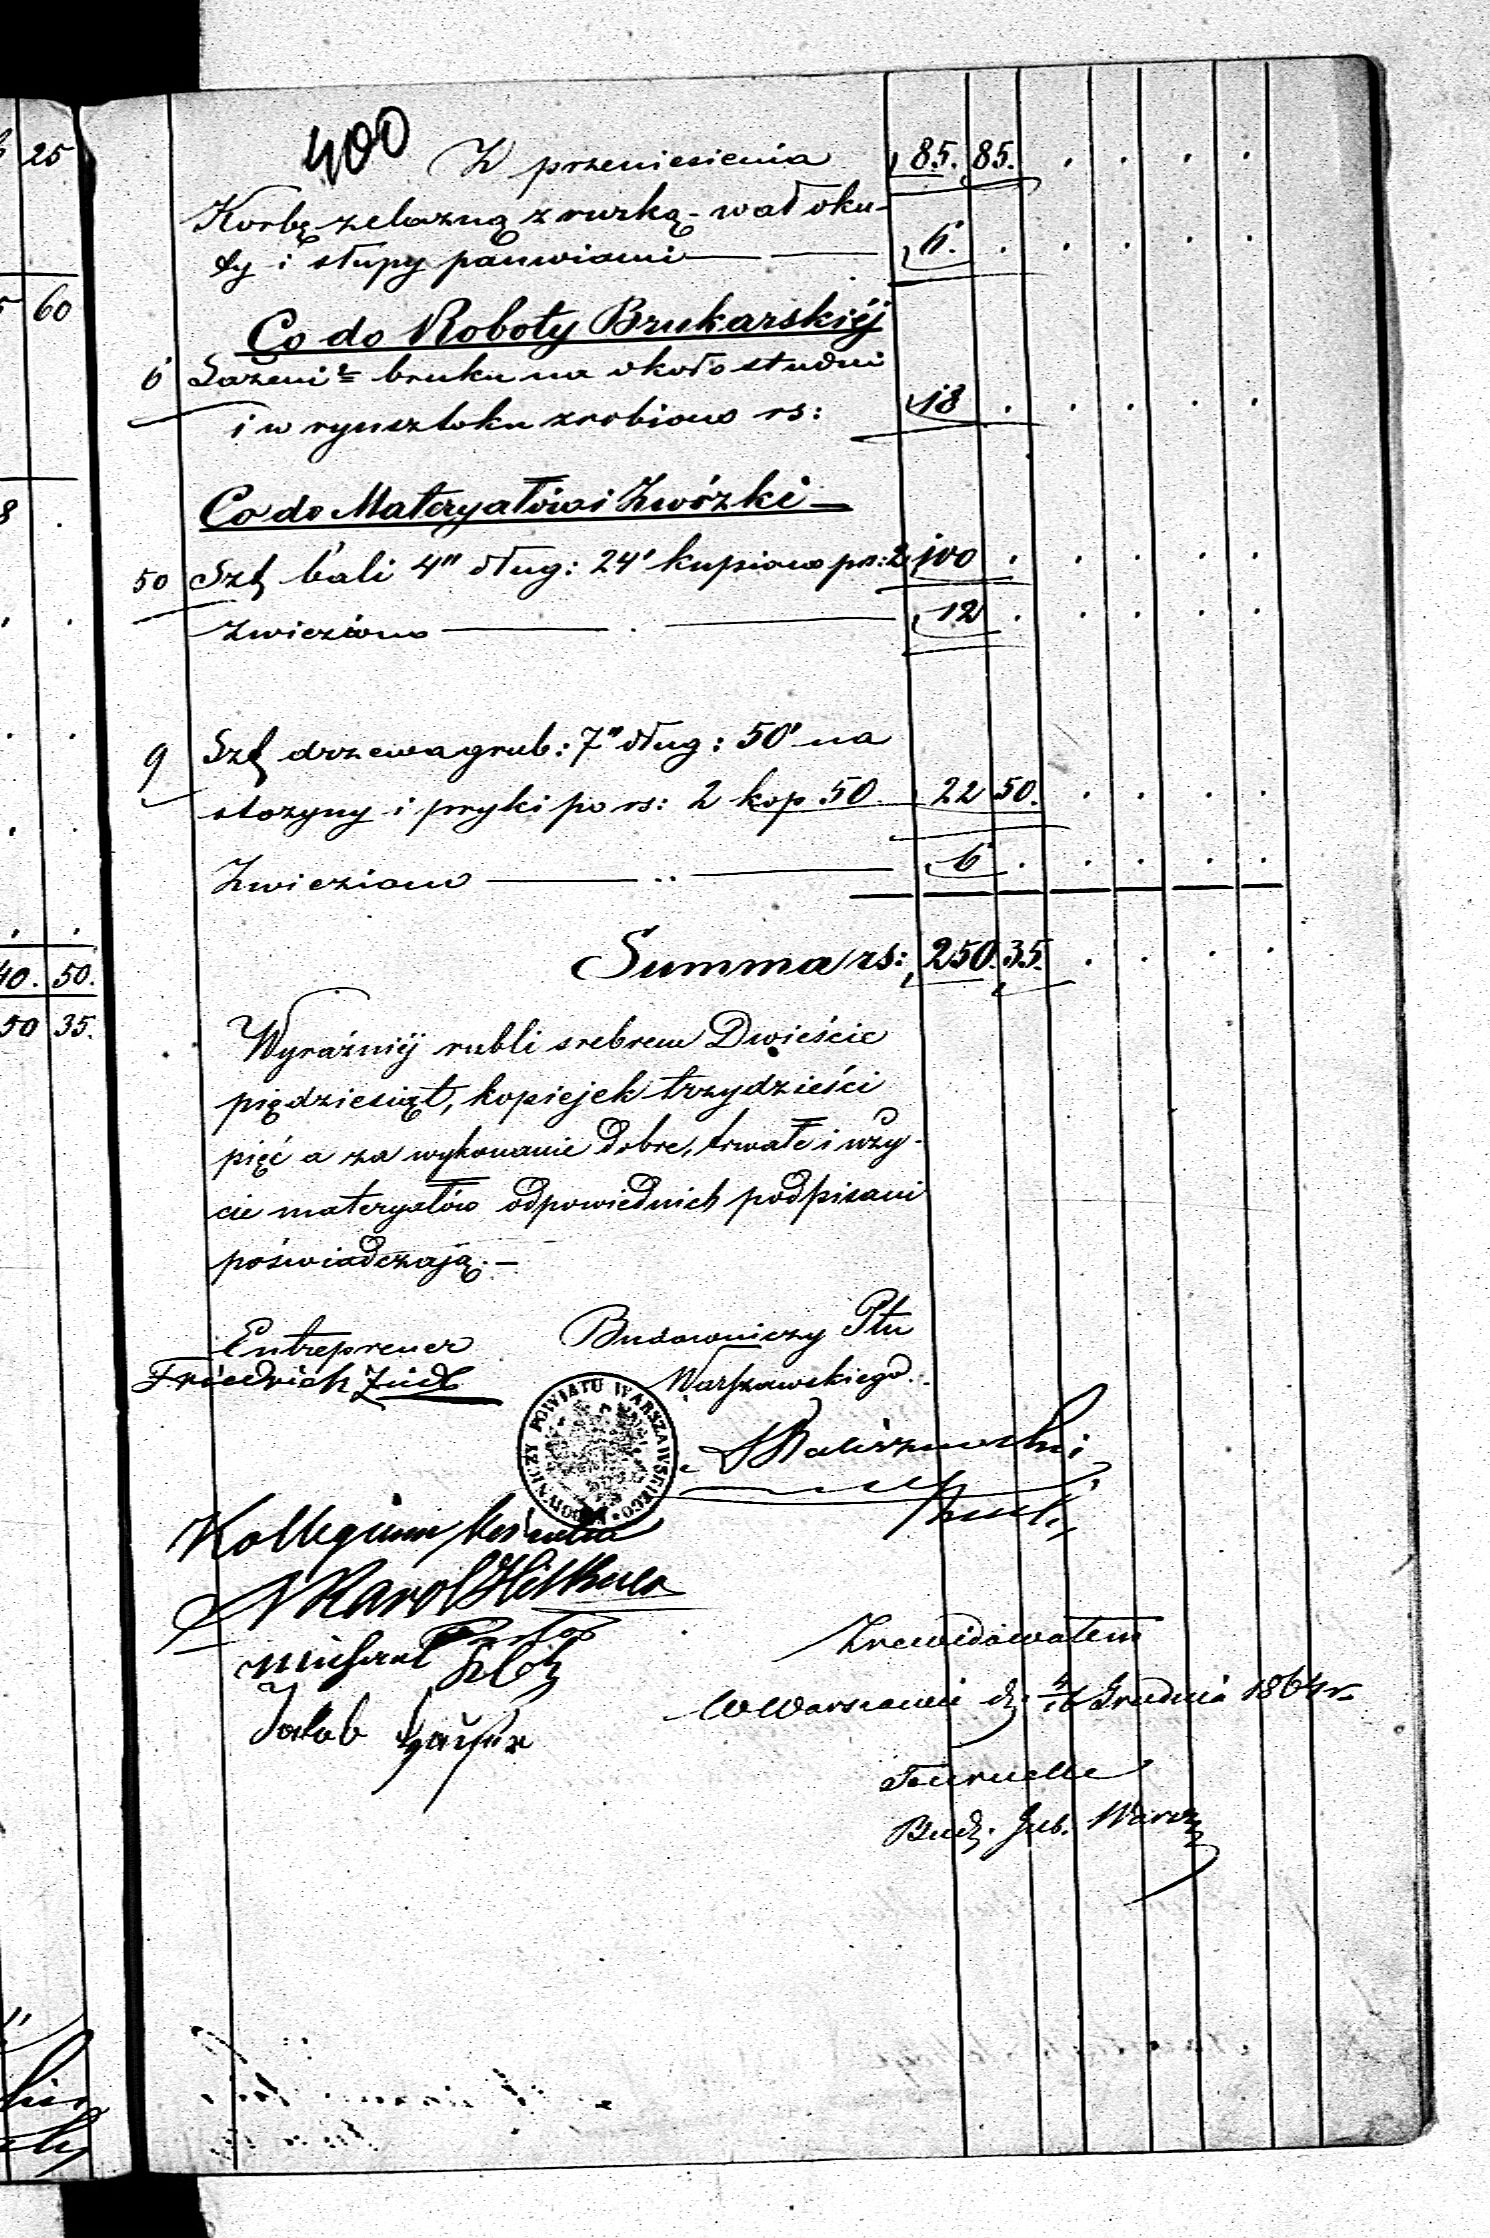 25
60
8
40. 50.
50 35.
400
Z przeniesienia 85. 85.
Korbę żelazną z rurką - wał oku-
ty i słupy panwiami 6.
Co do Roboty Brukarskiéj
6 Sążeni □ bruku na około studni
i w rynsztoku zrobiono rs: 18
Co do Materyałów i Zwózki
50 Szt bali 4" dług: 24' kupiono po rs: 2 100
Zwieziono 12
9 Szt drzewa grub: 7" dług: 50' na
stozyny i pryki po rs: 2 kop 50 22 50.
Zwieziono 6
Summa rs: 250. 35.
Wyraźniéj rubli srebrem Dwieście
pięдziesiąt, kopiejek trzydzieści
pięć a za wykonanie dobre, trwałe i uży-
cie materyałów odpowiednich podpisani
poświadczają. —
Entreprener
Friedrich
Budowniczy Ptu
Warszawskiego.
BUDOWNICZY POWIATU WARSZAWSKIEGO
Kollegium
Karol
Pastor
Michael
Jakob
Zrewidowałem
W Warszawie d. 4/16 Grudnia 1864 r.
Tournelle
Bud. Gub. Warsz